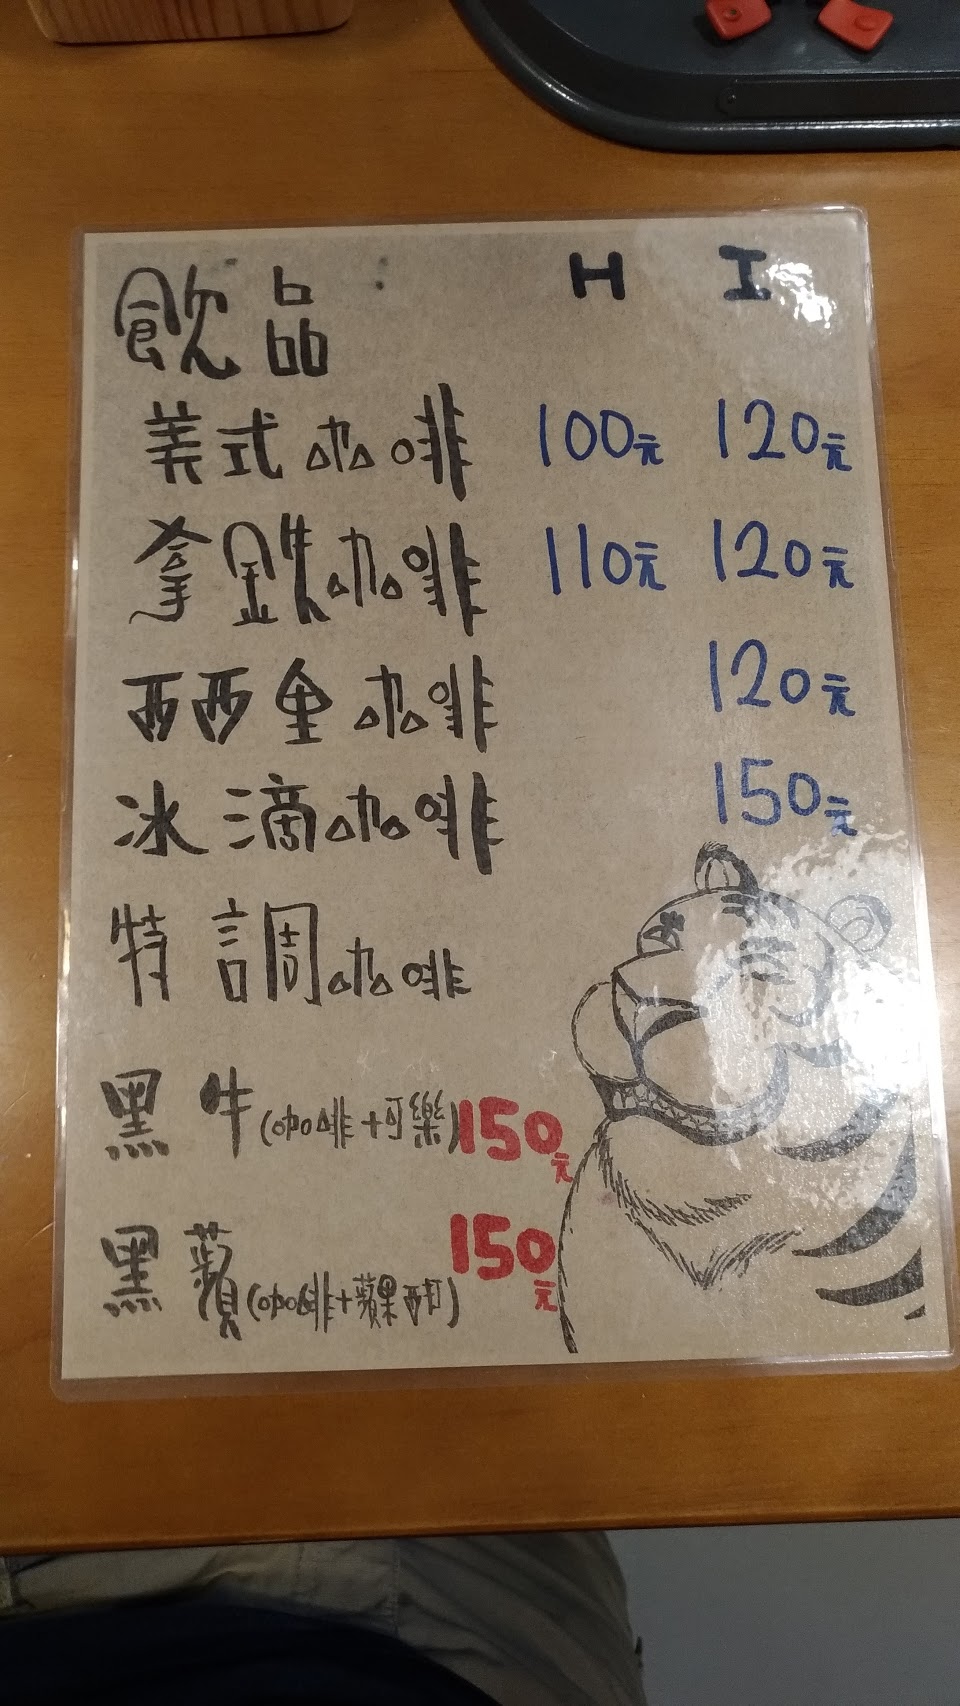 飲品 H I
美式咖啡 100元 120元
拿鐵咖啡 110元 120元
西西里咖啡 120元
冰滴咖啡 150元
特調咖啡
黑牛(咖啡+可樂)150元
黑蘋(咖啡+蘋果西打)150元